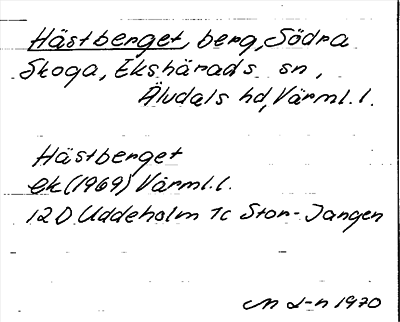 Hästberget, berg, Södra
Skoga, Ekshärads sn,
Äludals hd, Värml. l.
Hästberget
ek (1969) Värml. l.
12 D Uddeholm 1c Stor-Jangen
1970